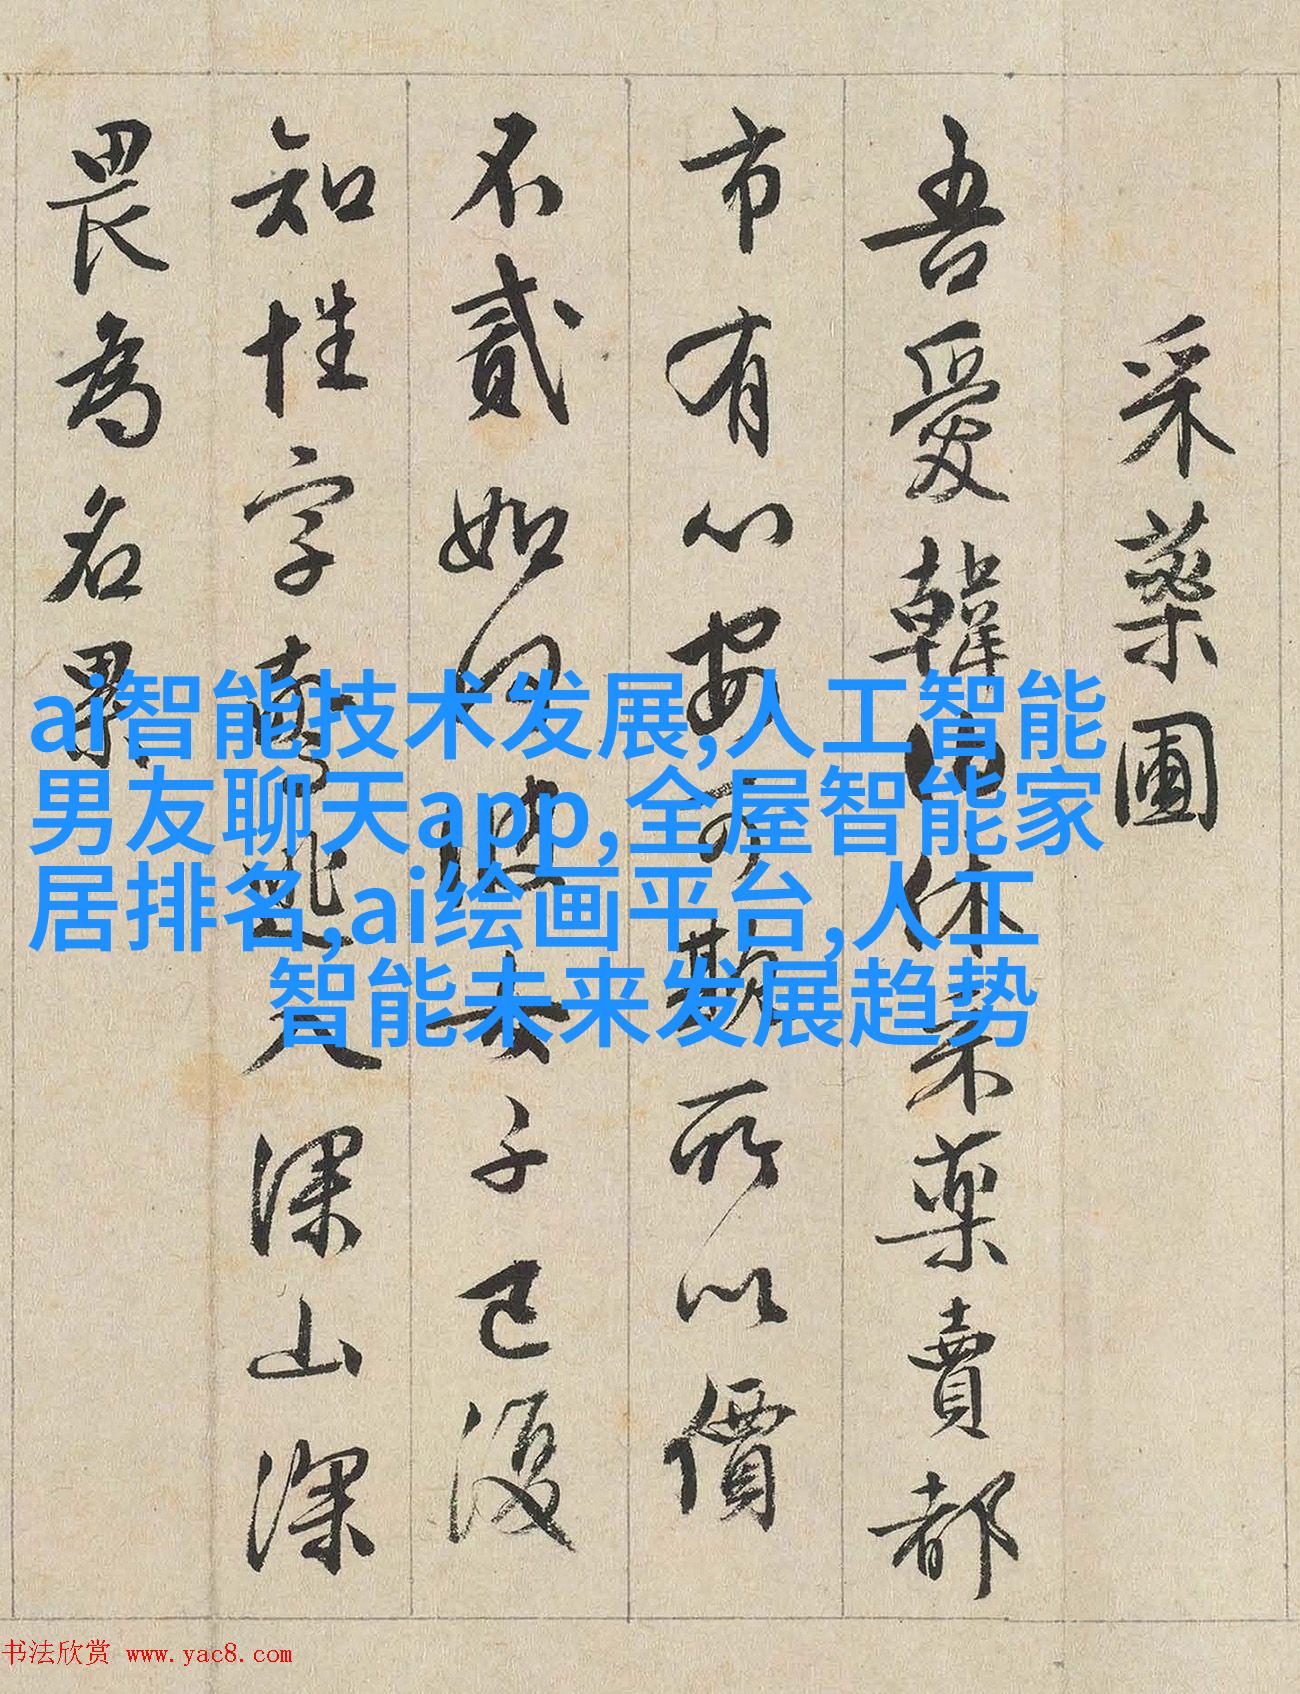 采藥圃
吾愛韓伯休采藥賣都
市有心安可欺所以價
不貳如何彼女子已復
知姓字驚逃入深山深
畏為名累
ai智能技术发展,人工智能
男友聊天app,全屋智能家
居排名,ai绘画平台,人工
智能未来发展趋势
书法欣赏 www.yac8.com